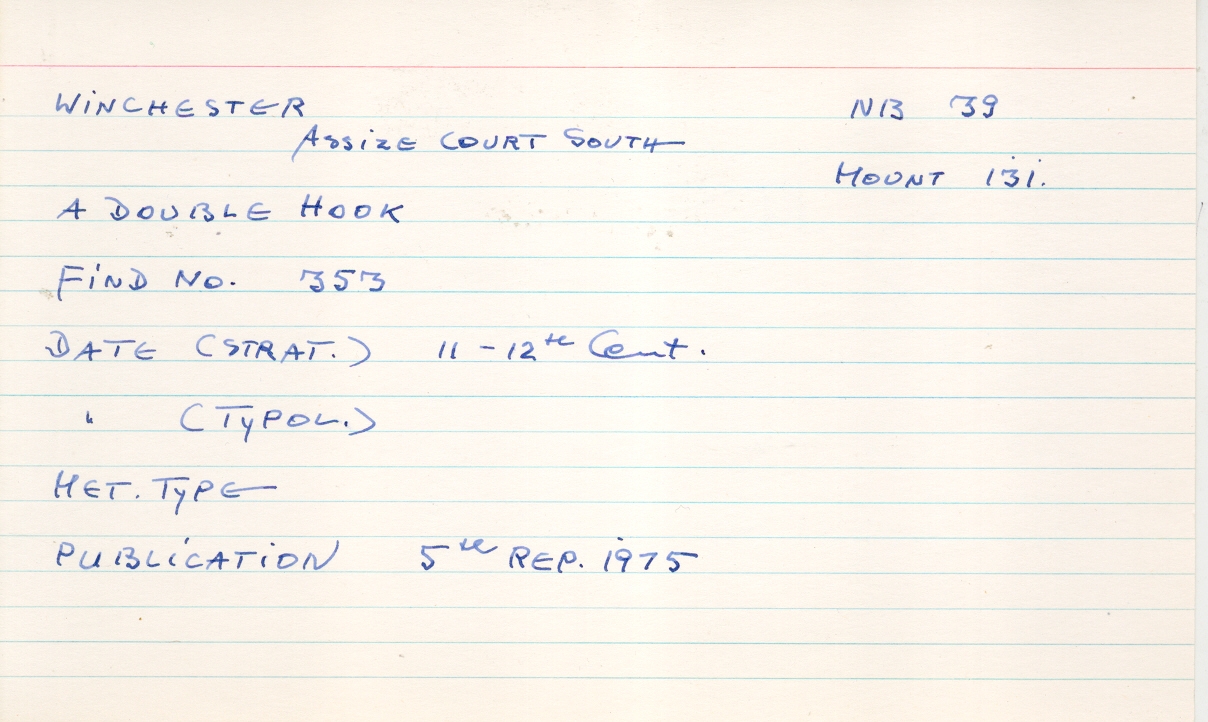 WINCHESTER NB 39
ASSIZE COURT SOUTH
MOUNT 131.
A DOUBLE HOOK
FIND NO. 353
DATE (STRAT.) 11 - 12th Cent.
" (TYPOL.)
MET. TYPE
PUBLICATION 5th REP. 1975